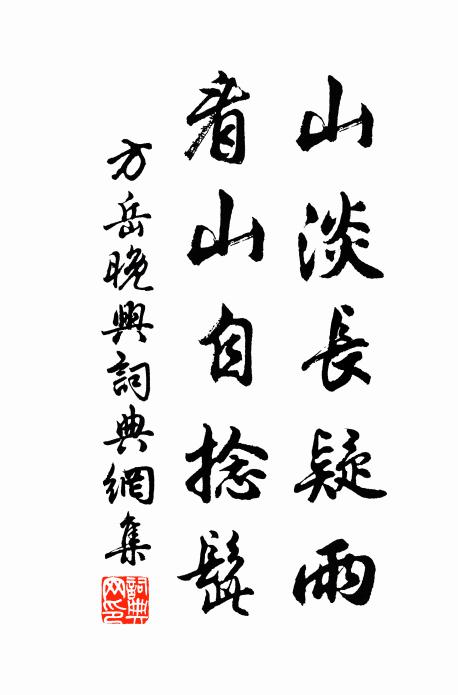 山淡長疑雨
看山自捻髭
方岳晚興詞典網集
詞典
网印